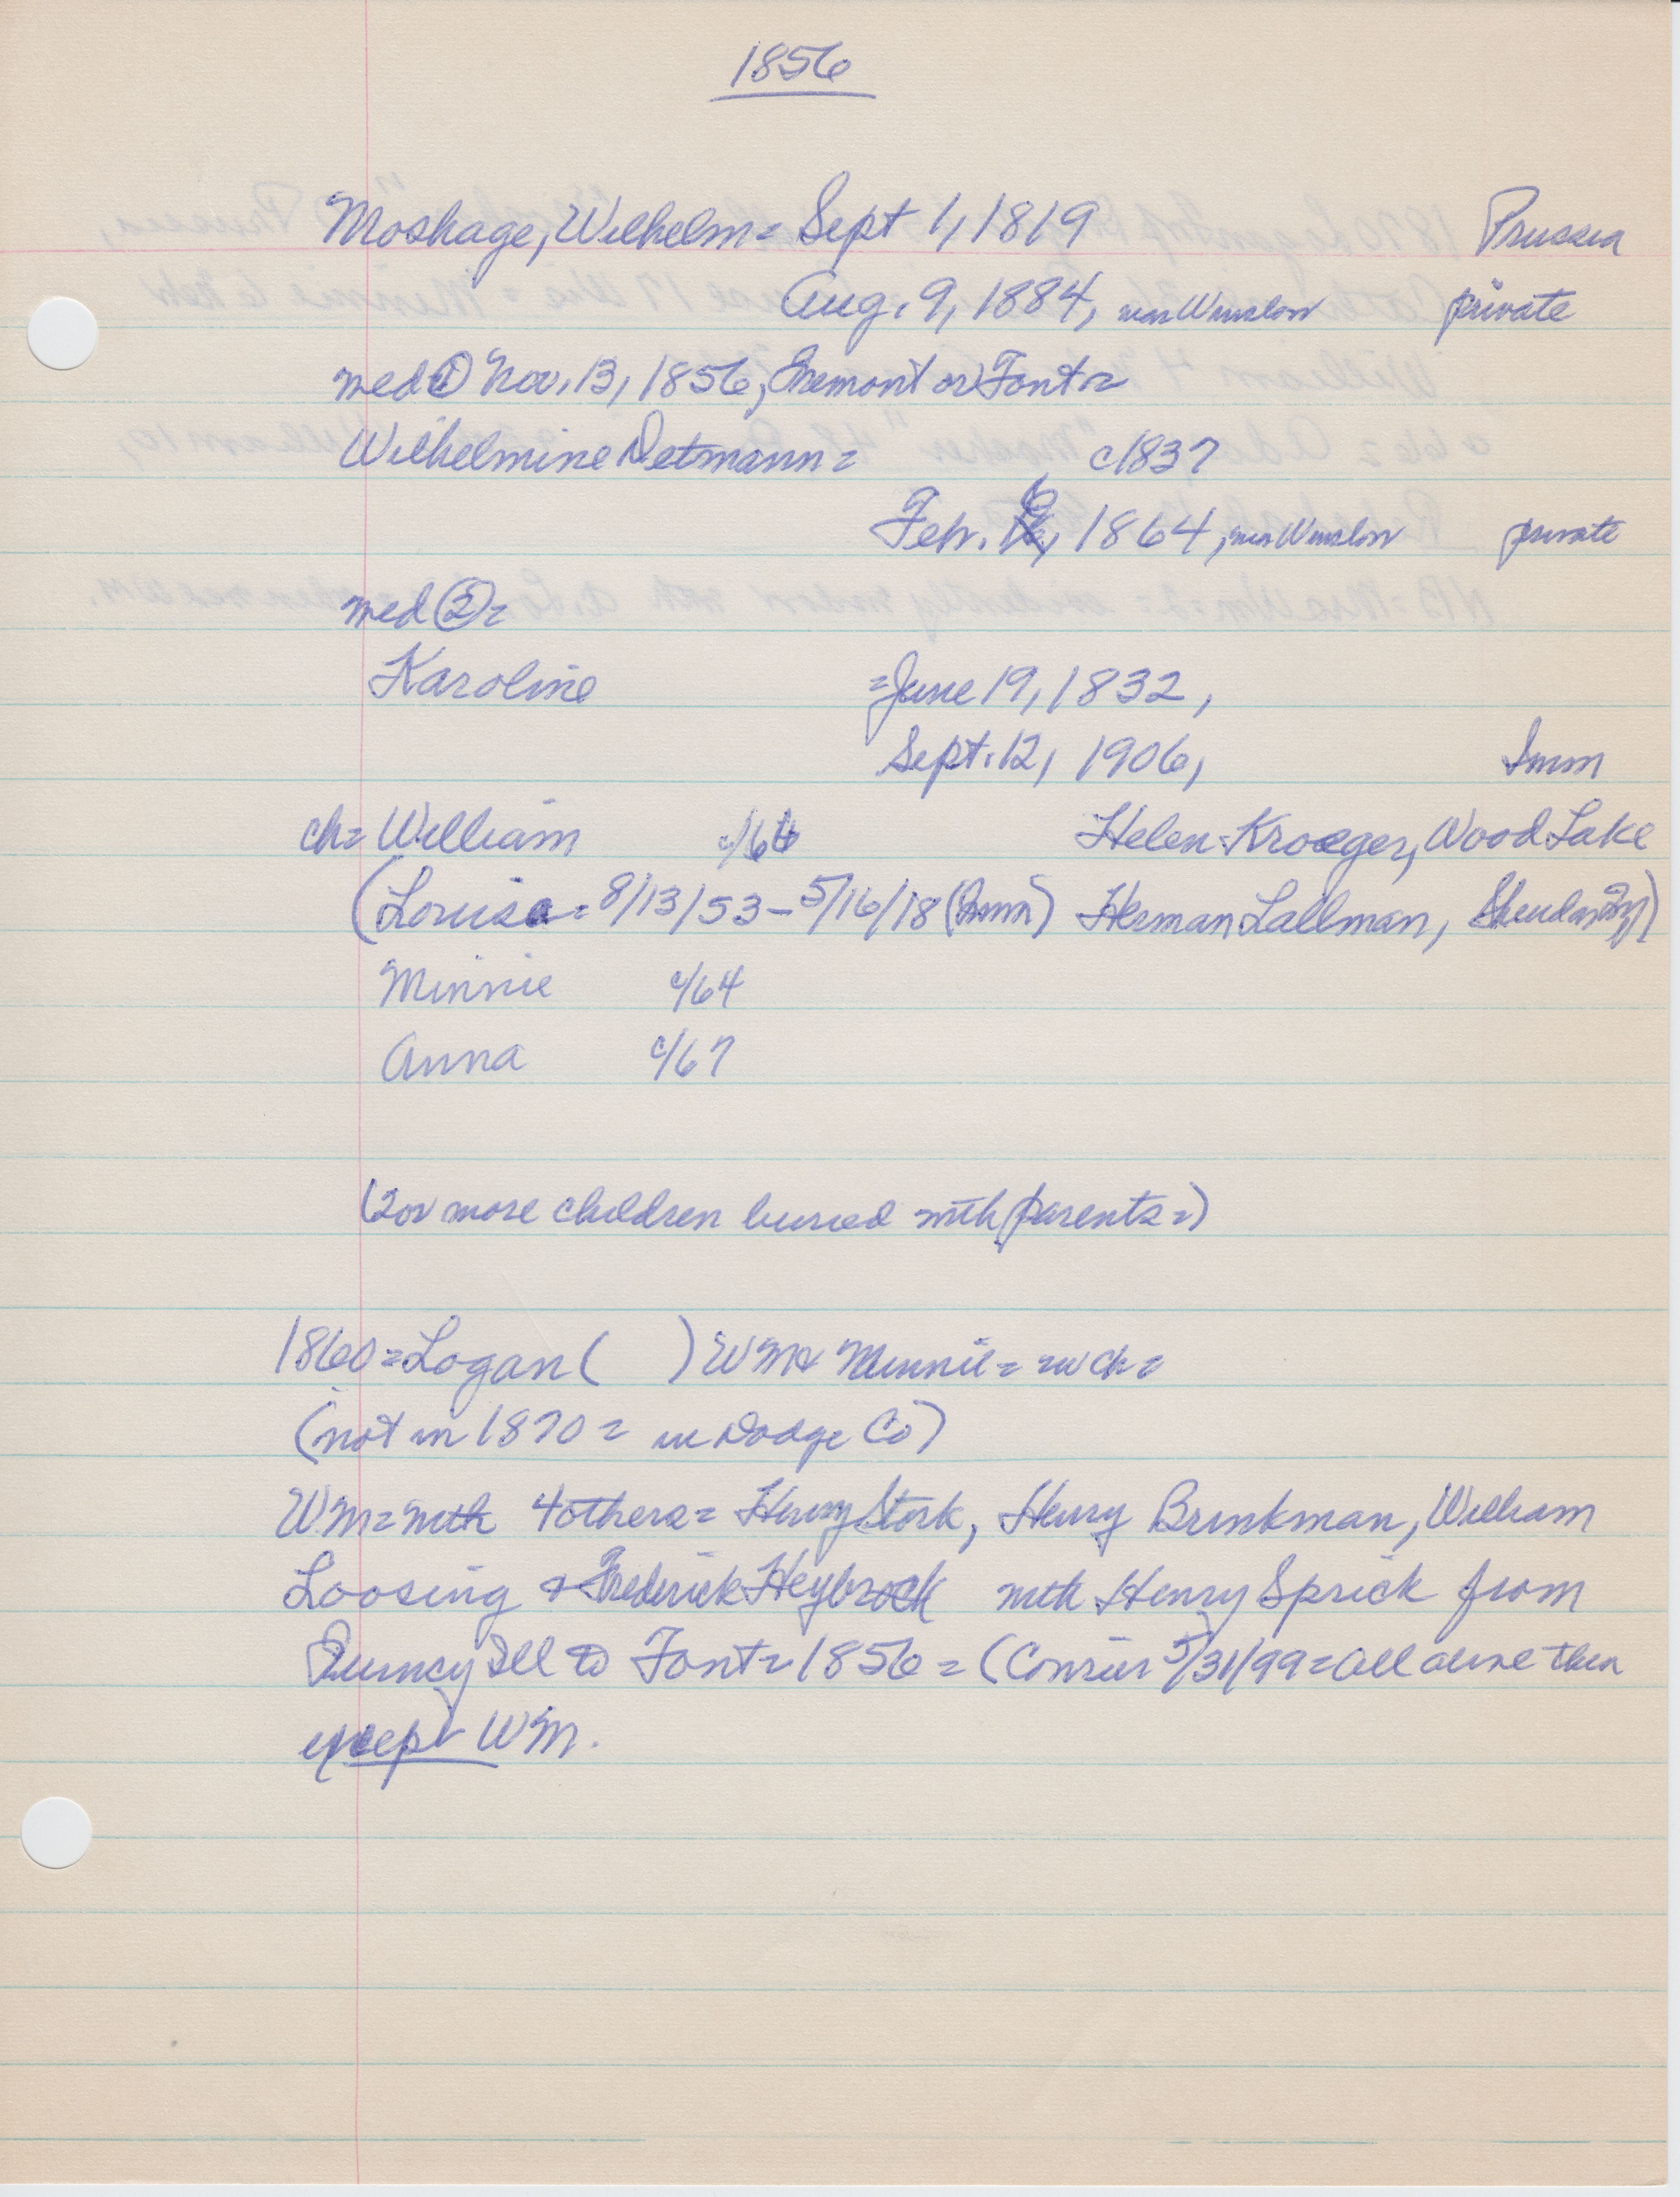 1856
Moshage, Wilhelm = Sept 1, 1819 Prussia
Aug. 9, 1884, near Winslow private
med ① Nov. 13, 1856, Fremont or Font =
Wilhelmine Detmann = c1837
Feb. 6, 1864, near Winslow private
med ② =
Karoline = June 19, 1832,
Sept. 12, 1906, Imm
ch = William c/66 Helen Kroeger, Wood Lake
(Louisa = 8/13/53 - 5/16/18 (Imm) Herman Lallman,
Minnie c/64
Anna c/67
(2 or more children buried with parents =)
1860 = Logan ( ) WM & Minnie = no ch =
(not in 1870 = in Dodge Co)
WM = with 4 others = Henry Stork, Henry Brinkman, William
Loosing & Frederick Heybrock with Henry Sprick from
Quincy Ill to Font = 1856 = (Courier 5/31/99 = all alive then
except WM.